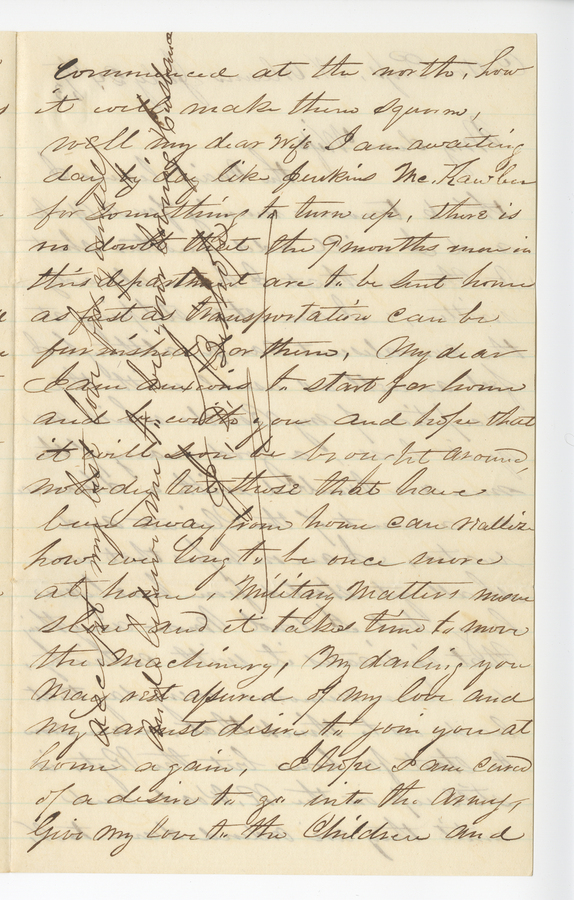 Commenced at the north, how
it will make them squirm,
well my dear wife I am awaiting
day by day like Jenkins Mc.Kawber
for something to turn up, there is
no doubt that the 9 months men in
this department are to be sent home
as fast as transportation can be
furnished for them, My dear
I am anxious to start for home
and be with you and hope that
it will soon be brought around,
nobody but those that have
been away from home can reallize
how we long to be once more
at home, Military Matters move
slow and it takes time to move
the Machinery, My darling you
May rest assured of my love and
my earnest desire to join you at
home again, I hope I am cured
of a desire to go into the army,
Give my love to the Children and
accept my best love for yourself
and believe me to be your loving husband